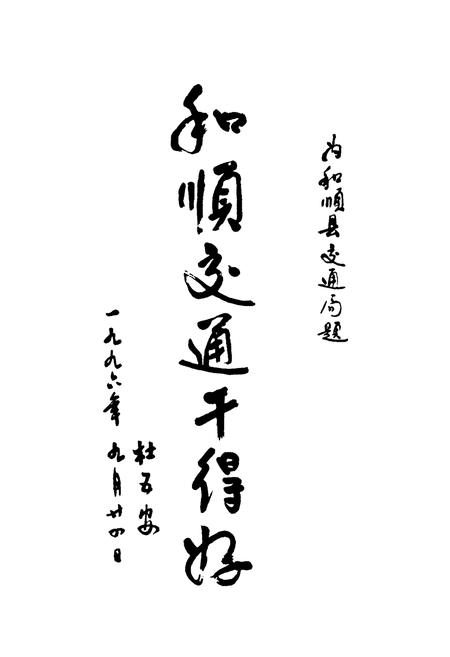 为和順县交通局题
和順交通干得好
杜五安
一九九六年九月廿四日